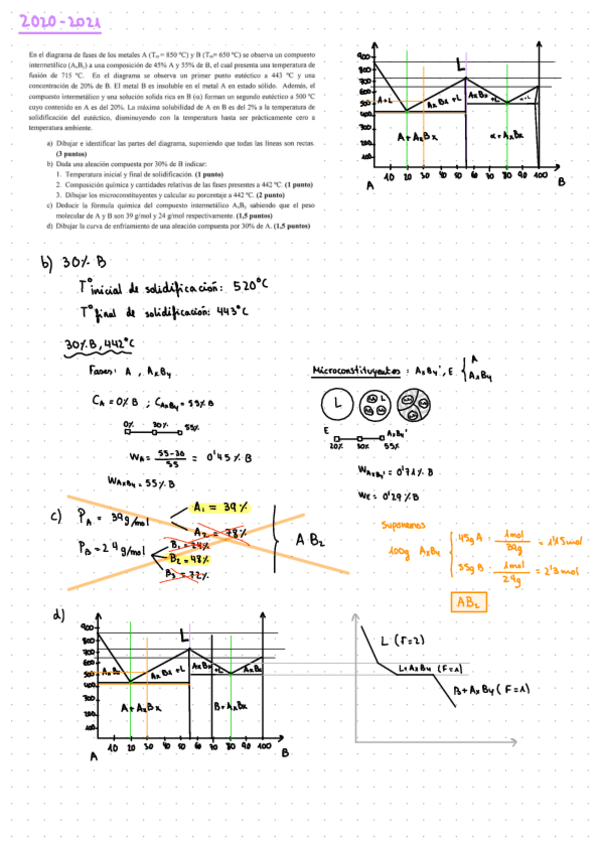 2020-2021
En el diagrama de fases de los metales A (Tm= 850 ºC) y B (Tm= 650 ºC) se observa un compuesto
intermetálico (AxBy) a una composición de 45% A y 55% de B, el cual presenta una temperatura de
fusión de 715 ºC. En el diagrama se observa un primer punto eutéctico a 443 ºC y una
concentración de 20% de B. El metal B es insoluble en el metal A en estado sólido. Además, el
compuesto intermetálico y una solución solida rica en B (α) forman un segundo eutéctico a 500 ºC
cuyo contenido en A es del 20%. La máxima solubilidad de A en B es del 2% a la temperatura de
solidificación del eutéctico, disminuyendo con la temperatura hasta ser prácticamente cero a
temperatura ambiente.
a) Dibujar e identificar las partes del diagrama, suponiendo que todas las líneas son rectas.
(3 puntos)
b) Dada una aleación compuesta por 30% de B indicar:
1. Temperatura inicial y final de solidificación. (1 punto)
2. Composición química y cantidades relativas de las fases presentes a 442 ºC. (1 punto)
3. Dibujar los microconstituyentes y calcular su porcentaje a 442 ºC. (2 punto)
c) Deducir la fórmula química del compuesto intermetálico AxBy sabiendo que el peso
molecular de A y B son 39 g/mol y 24 g/mol respectivamente. (1,5 puntos)
d) Dibujar la curva de enfriamiento de una aleación compuesta por 30% de A. (1,5 puntos)
900
800
700
600
500
400
300
200
100
L
A+L
AxBx+L
AxBx+L
α+L
A+AxBx
α+AxBx
10 20 30 40 50 60 70 80 90 100
A
B
b) 30% B
Tº inicial de solidificación: 520ºC
Tº final de solidificación: 443ºC
30% B, 442ºC
Fases: A , AxBy
CA = 0% B ; CAxBy = 55% B
0% 30% 55%
WA = 55-30 / 55 = 0'45 % B
WAxBy = 55% B
Microconstituyentes : AxBy', E { A
AxBy
L
L
E
AxBy'
20% 30% 55%
WAxBy' = 0'71% B
WE = 0'29 % B
c) PA = 39g/mol
A1 = 39%
A2 = 78%
PB = 24 g/mol
B1 = 24%
B2 = 48%
B3 = 72%
AB2
Suponemos
100g AxBy
45g A · 1mol / 39g = 1'15mol
55g B · 1mol / 24g = 2'3mol
AB2
d)
900
800
700
600
500
400
300
200
100
L
AxBx
AxBx+L
AxBx
+L
AxBx
A+AxBx
B+AxBx
10 20 30 40 50 60 70 80 90 100
A
B
L (F=2)
L+AxBy (F=1)
B+AxBy (F=1)